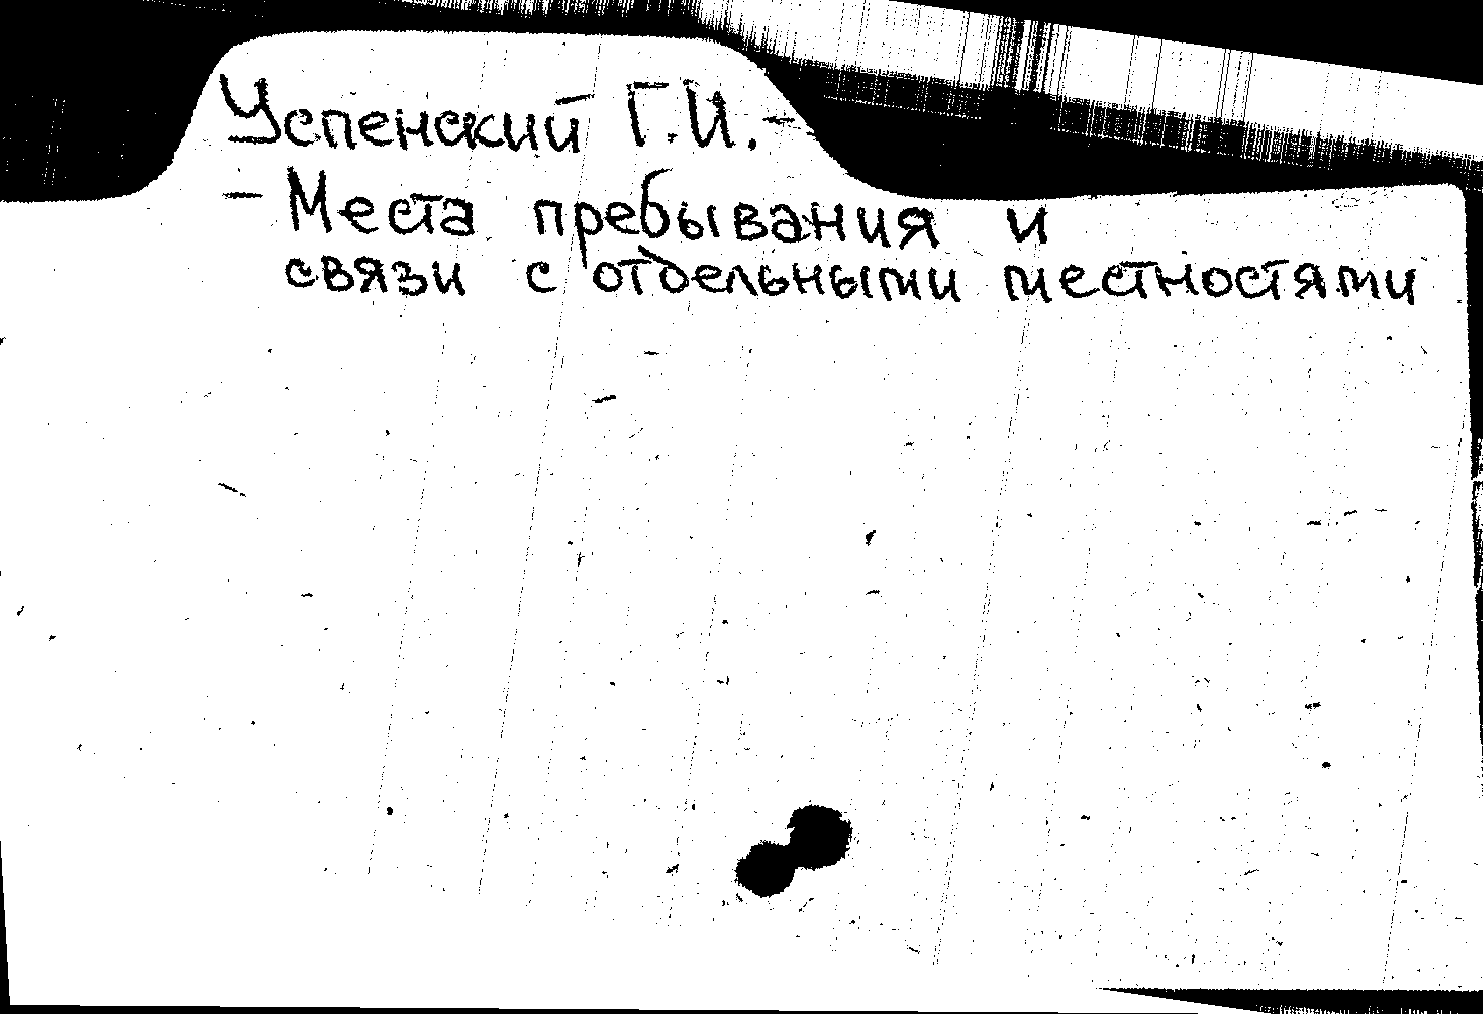 Успенский Г.И. -
- Места пребывания и
связи с отдельными местностями